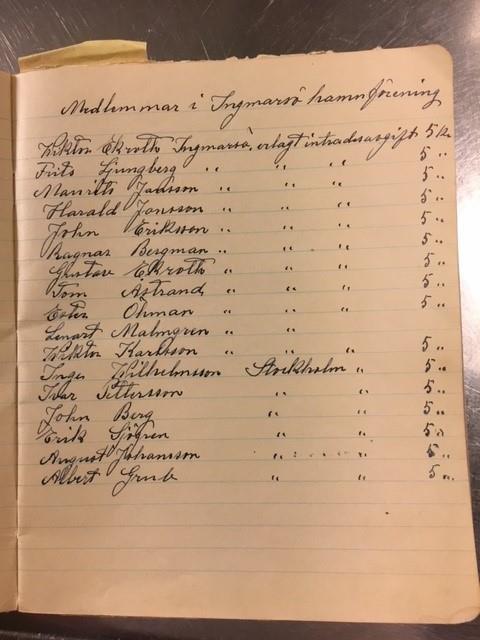 Medlemmar i Ingmarsö hamnförening
Wiktor Ekroth Ingmarsö, erlagt inträdesavgift 5 kr
Frits Ljungberg " " " 5 "
Maurits Jansson " " " 5 "
Harald Jonsson " " " 5 "
John Eriksson " " " 5 "
Ragnar Bergman " " " 5 "
Gustave Ekroth " " " 5 "
Tom Åstrand " " " 5 "
Ester Öhman " " " 5 "
Lenart Malmgren " "
Wiktor Karlsson " " " 5 "
Inge Wilhelmsson Stockholm " 5 "
Ivar Pettersson " " 5 "
John Berg " " 5 "
Erik Sjögren " " 5 "
August Johansson " " 5 "
Albert Grub " " 5 "